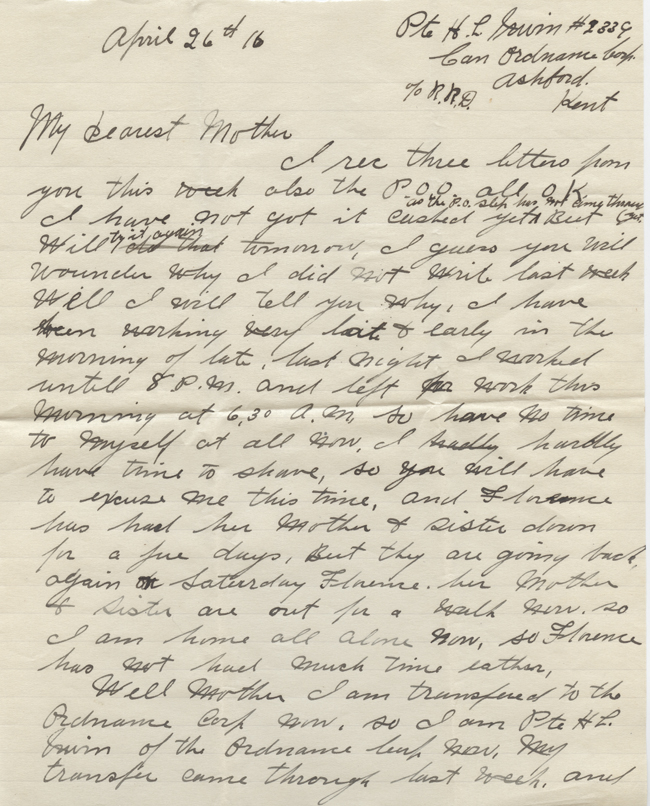 April 26th 16
Pte H. L. Irwin # 2339
Can Ordnance Corp.
Ashford.
c/o R.R.D. Kent
My dearest Mother
I rec three letters from
you this week also the P.O.O. all O.K
as the P.O. slip has not come through yet.
I have not got it cashed yet But
try it again
Will do that tomorrow, I guess you will
Wounder why I did not write last week
Well I will tell you why, I have
been working very late & early in the
morning of late, last night I worked
untill 8 P.M. and left for work this
Morning at 6,30 A.M, so have no time
to myself at all now, I hadly hardly
have time to shave, so you will have
to excuse me this time, and Florence
has had her Mother & sister down
for a fue days, But they are going back
again on Saturday Florence. her Mother
& Sister are out for a walk now. so
I am home all alone now, so Florence
has not had much time eather,
Well Mother I am transfered to the
Ordnance Corp now, so I am Pte H.L.
Irwin of the Ordnance Corp now, My
transfer came through last week, and